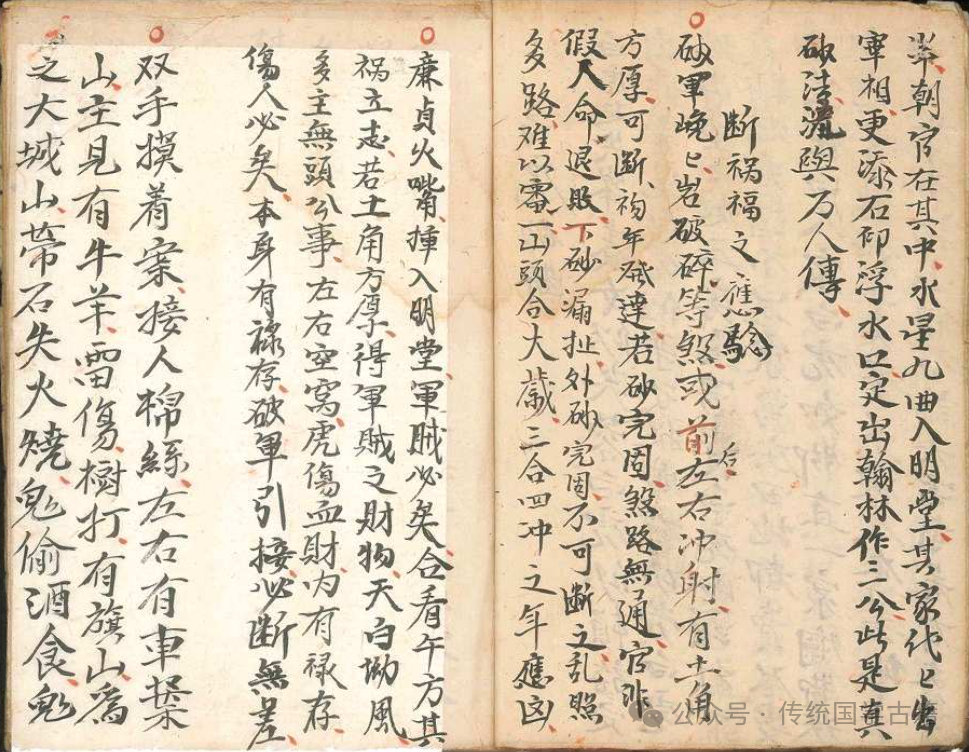 半朝官在其中水星九曲入明堂其家代〻出
宰相更添石印浮水口定出翰林作三公此是真
砂法流與万人傳
断祸福之應驗
破軍巉〻岩破碎等煞或前后左右冲射有土角
方厚可断初年発達若砂完固煞路無通官非
假人命退敗下砂漏扯外砂完固不可断之乱照
多路难以雷一山頭合大歲三合四冲之年應凶
廉貞火嘴捶入明堂軍賊必矣合看午方其
祸立志若土角方厚得軍賊之財物天白坳風
多主無頭公事左右空窝虎傷血財内有禄存
傷人必矣本身有禄存破軍引接必断無差
双手摸着案接人棉絲左右有車操
山主見有牛羊雷傷樹打有旗山為
之大城山带石失火燒鬼偷酒食鬼
公众号·传统国学古籍